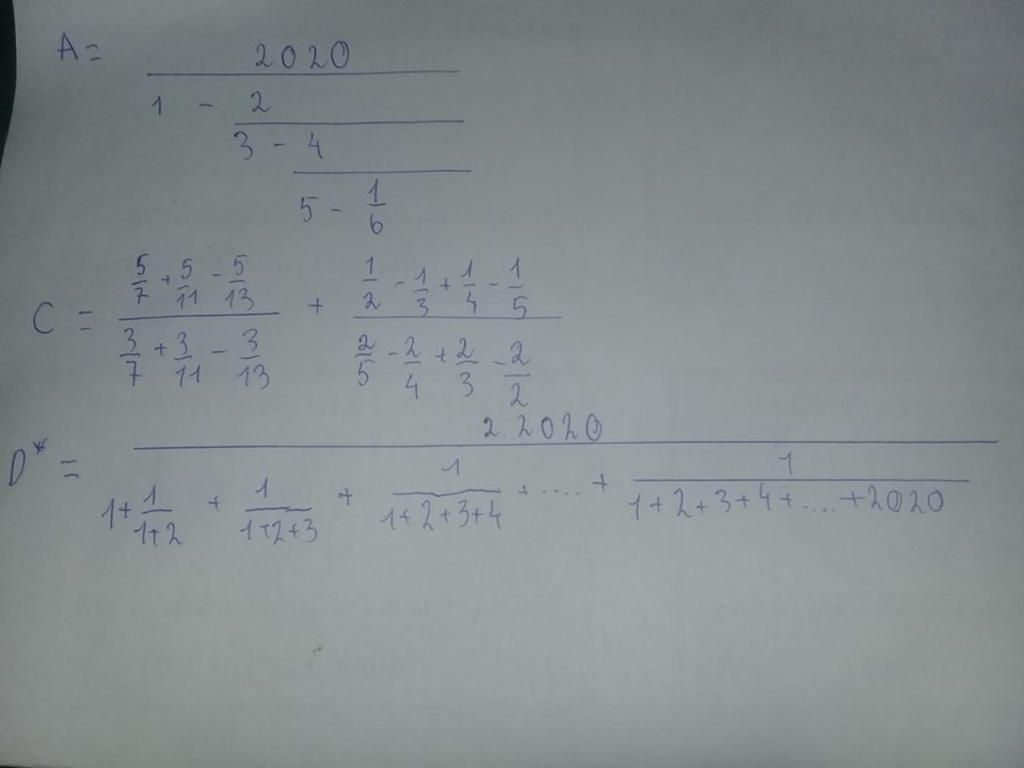 A = 2020 / (1 - 2 / (3 - 4 / (5 - 1/6)))
C = (5/7 + 5/11 - 5/13) / (3/7 + 3/11 - 3/13) + (1/2 - 1/3 + 1/4 - 1/5) / (2/5 - 2/4 + 2/3 - 2/2)
D* = 2.2020 / (1 + 1/(1+2) + 1/(1+2+3) + 1/(1+2+3+4) + .... + 1/(1+2+3+4+....+2020))